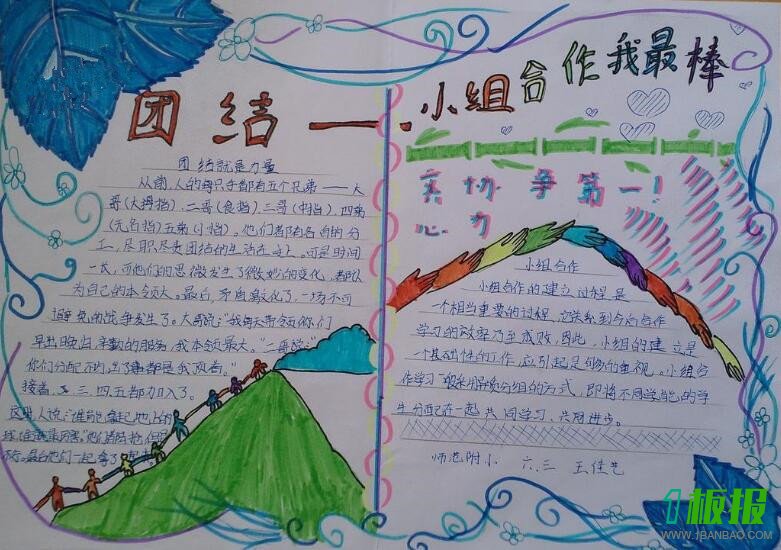 团结——小组合作我最棒
团结就是力量
从前,人的每只手都有五个兄弟——大
哥(大拇指),二哥(食指),三哥(中指),四弟
(无名指)五弟(小指)。他们都有各自的分
工,尽职尽责团结的生活在这上。可是时间
一长,而他们的思微发生了微妙的变化,都认
为自己的本领大。最后,矛盾激化了,一场不可
避免的战争发生了。大哥说:"我每天带领你们
早出晚归,辛勤的服务,我本领最大。"二哥说:"
你们分配不均,出了事都是我顶着。"
接着,三、四、五都加入了。
这时人说:"谁能拿起地上的
球,谁就最厉害。"他们都
最后他们一起拿了
齐心协力争第一!
小组合作
小组合作的建立过程是
一个相当重要的过程,它关系到今后合作
学习的效率乃至成败,因此,小组的建立是
一个基础性的工作,应引起足够的重视。小组合
作学习一般采用异质分组的方式,即将不同学能的学
生分配在一起共同学习、共同进步。
师范附小 六.三 王佳艺
板报
WWW.JBANBAO.COM